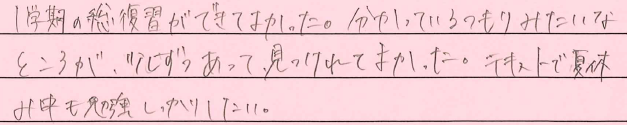 1学期の総復習ができてよかった。分かっているつもりみたいな
ところが、少しずつあって、見つけれてよかった。テキストで夏休
み中も勉強しっかりしたい。